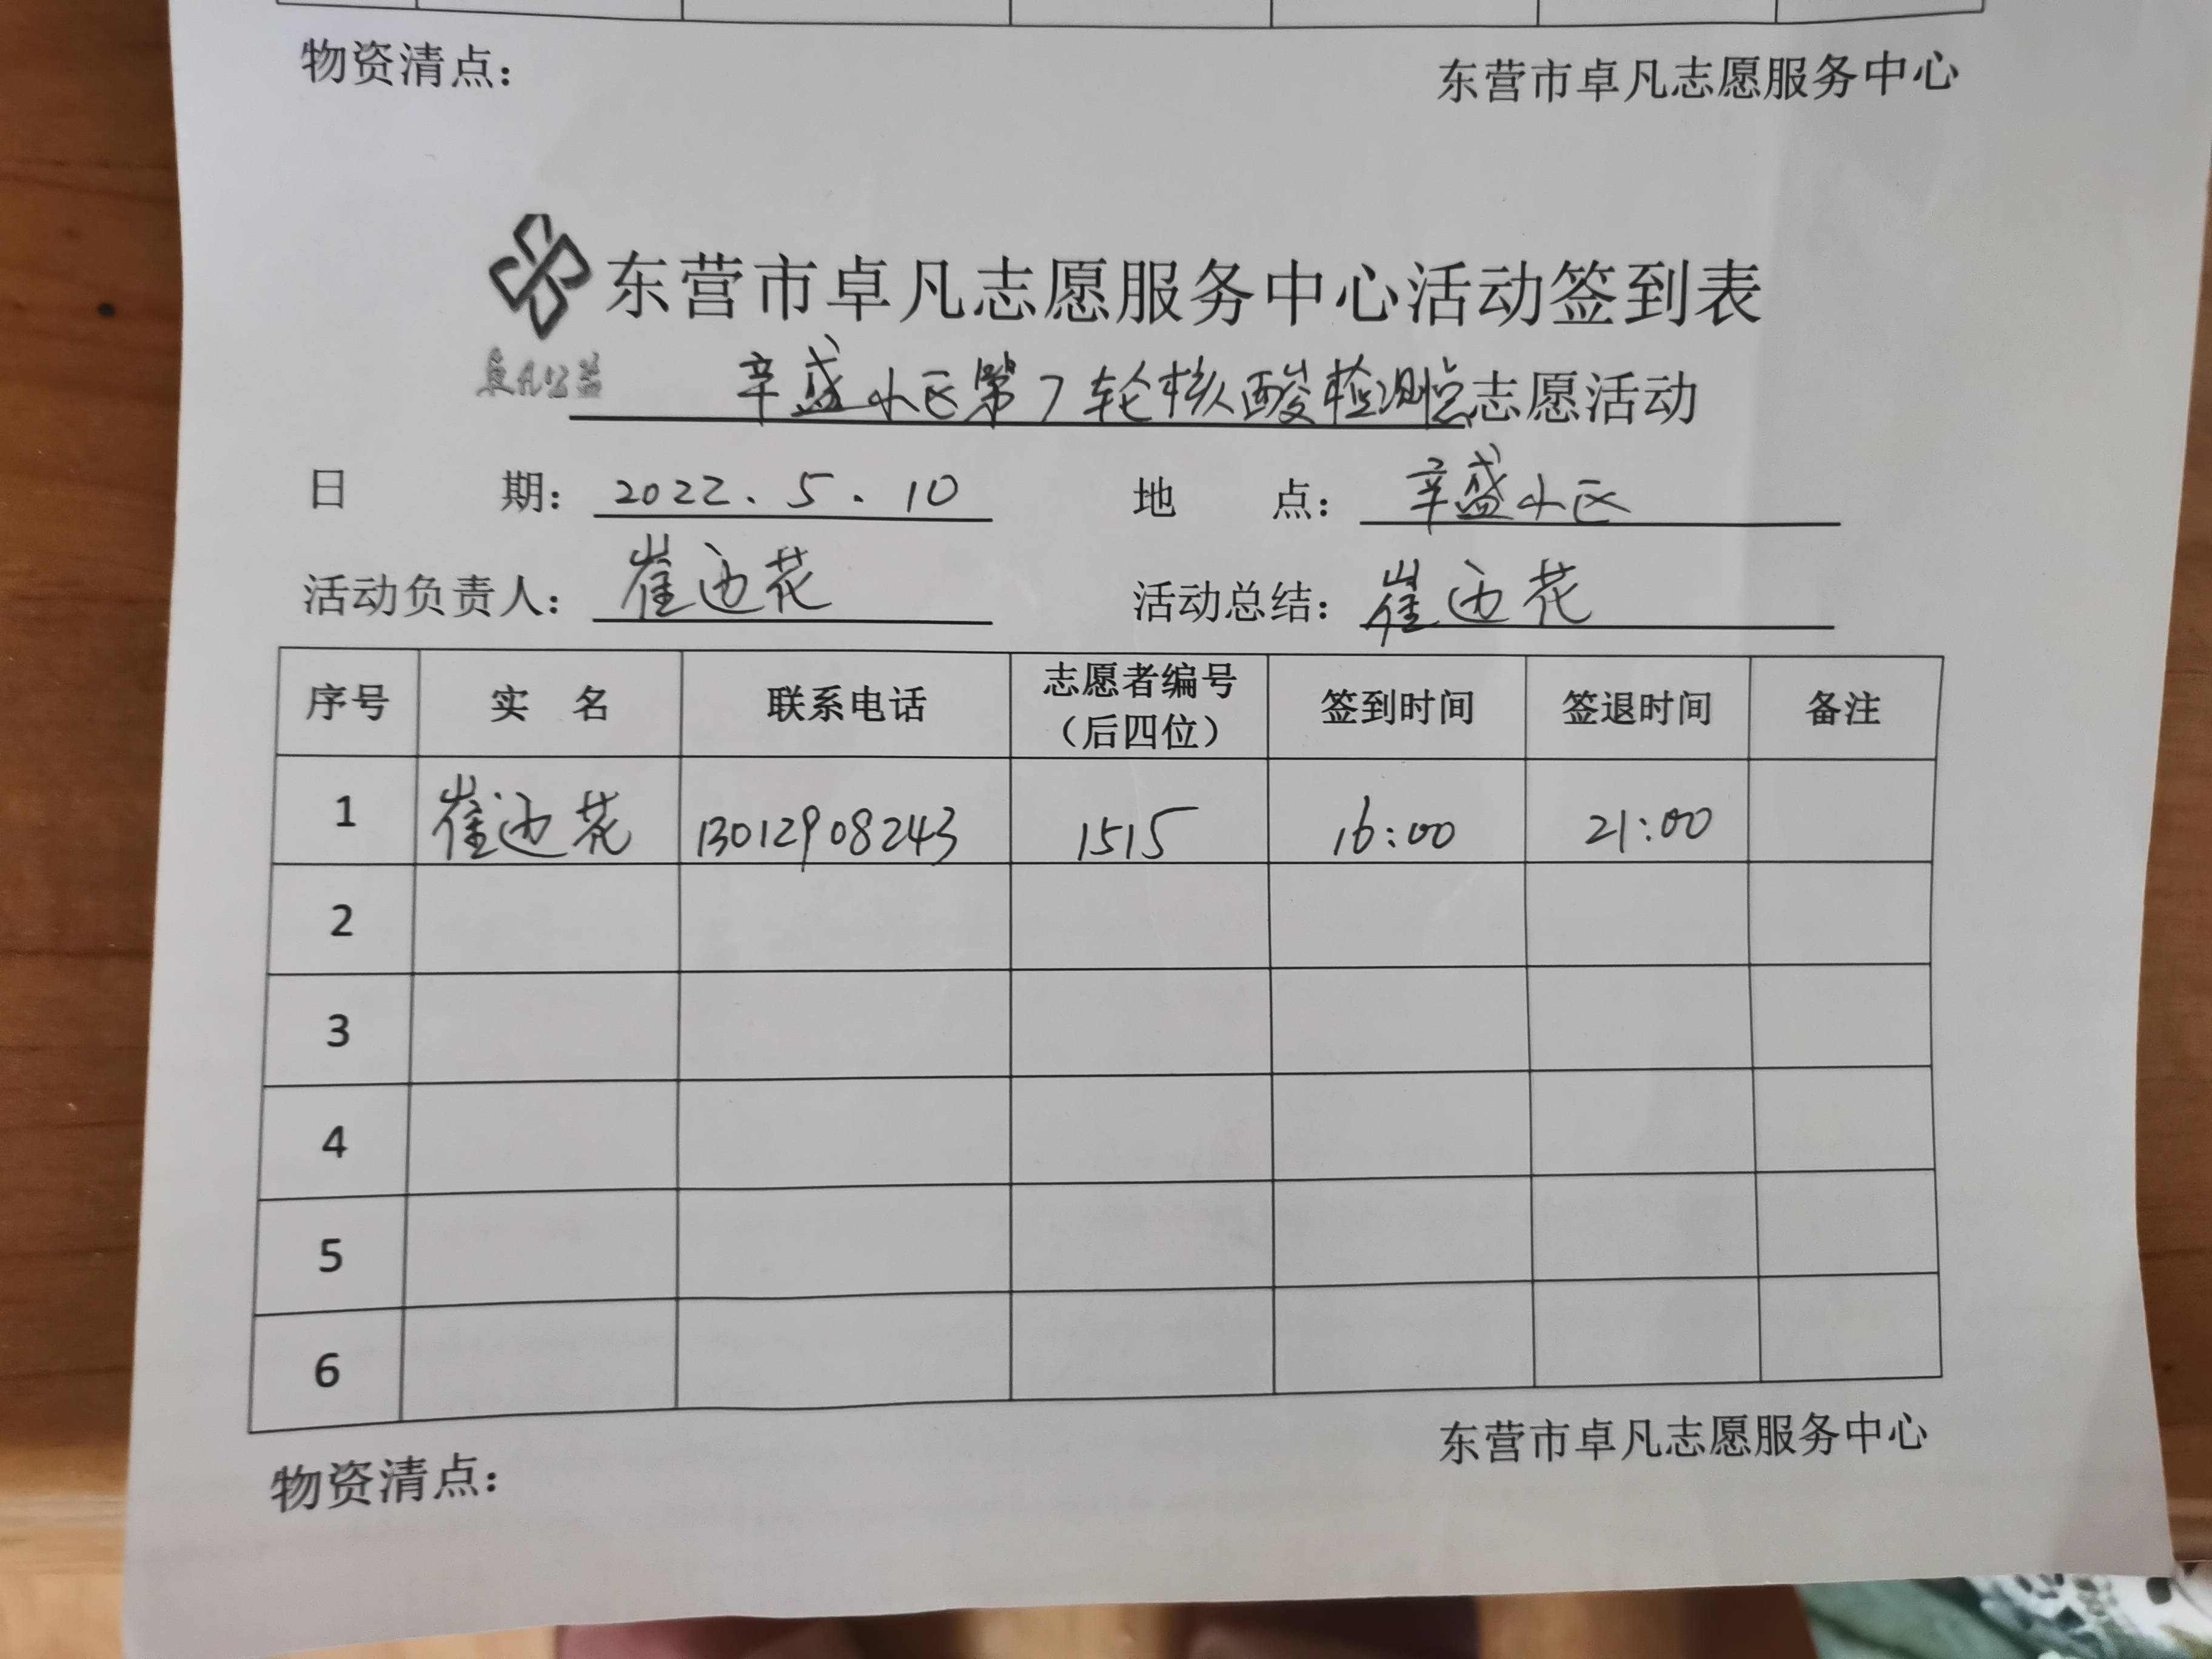 物资清点： 东营市卓凡志愿服务中心
东营市卓凡志愿服务中心活动签到表
卓凡公益
辛盛小区第7轮核酸检测点志愿活动
日 期： 2022.5.10 地 点： 辛盛小区
活动负责人： 崔迎花 活动总结： 崔迎花
序号 实 名 联系电话 志愿者编号（后四位） 签到时间 签退时间 备注
1 崔迎花 13012908243 1515 16:00 21:00
2
3
4
5
6
东营市卓凡志愿服务中心
物资清点：